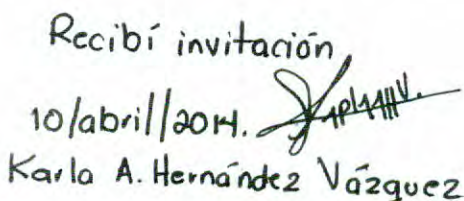 Recibí invitación
10/abril/2014.
Karla A. Hernández Vázquez